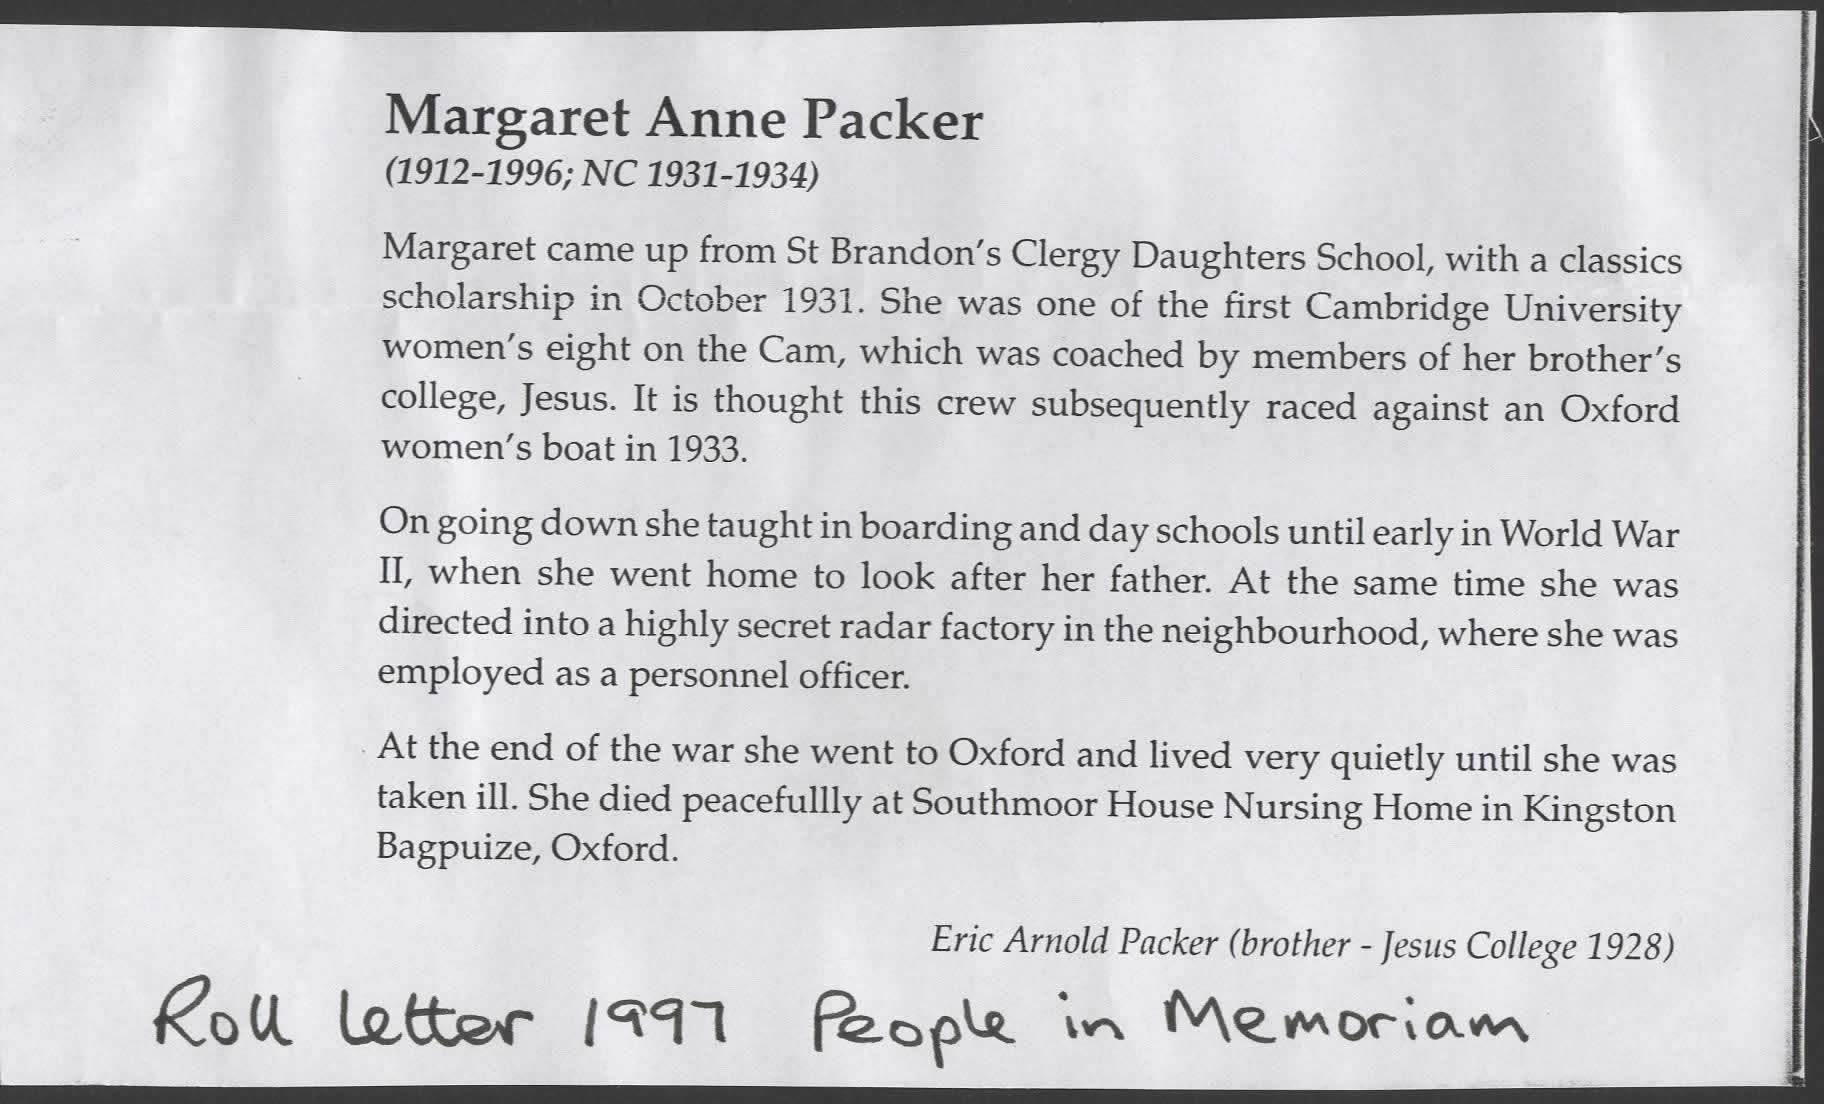 Margaret Anne Packer
(1912-1996; NC 1931-1934)
Margaret came up from St Brandon's Clergy Daughters School, with a classics
scholarship in October 1931. She was one of the first Cambridge University
women's eight on the Cam, which was coached by members of her brother's
college, Jesus. It is thought this crew subsequently raced against an Oxford
women's boat in 1933.
On going down she taught in boarding and day schools until early in World War
II, when she went home to look after her father. At the same time she was
directed into a highly secret radar factory in the neighbourhood, where she was
employed as a personnel officer.
At the end of the war she went to Oxford and lived very quietly until she was
taken ill. She died peacefullly at Southmoor House Nursing Home in Kingston
Bagpuize, Oxford.
Eric Arnold Packer (brother - Jesus College 1928)
Roll Letter 1997 People in Memoriam